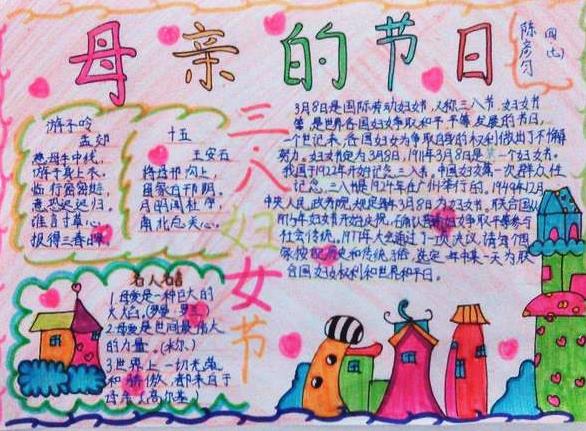 母亲的节日
四(七)
陈彦匀
三八妇女节
游子吟
孟郊
慈母手中线,
游子身上衣。
临行密密缝,
意恐迟迟归。
谁言寸草心,
报得三春晖。
十五
王安石
将母邗沟上,
留家白邗阴。
月明闻杜宇,
南北总关心。
名人名言
1.母爱是一种巨大的
火焰。(罗曼·罗兰)
2.母爱是世间最伟大
的力量。(米尔)
3世界上一切光荣
和骄傲,都来自于
母亲(高尔基)
3月8日是国际劳动妇女节,又称三八节、妇女节
等,是世界各国妇女争取和平、平等、发展的节日,
一个世纪来,各国妇女为争取自身的权利做出了不懈
努力。妇女节定为3月8日,1911年3月8日是第一个妇女节。
我国于1922年开始纪念三八节。中国妇女第一次群众性
纪念三八节是1924年在广州举行的。1949年12月,
中央人民政府政务院规定每年3月8日为妇女节。联合国从
1975年妇女节开始庆祝,
社会传统。1977年大会通过了一项决议,请每个国
家按照历史和传统习俗,选定一年中某一天为联
合国妇女权利和世界和平日。